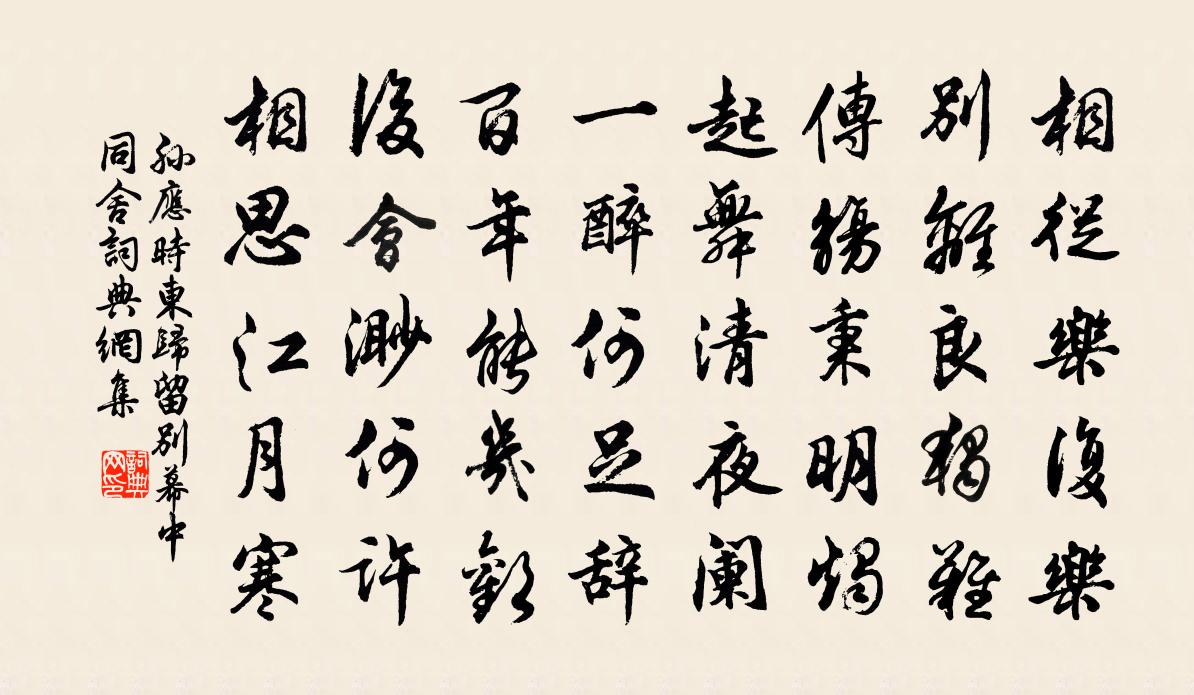 相從樂復樂
別離良獨難
傳觴秉明燭
起舞清夜闌
一醉何足辞
百年能幾歡
後會渺何許
相思江月寒
孫應時東歸留別幕中
同舍詞典網集
詞典
网印